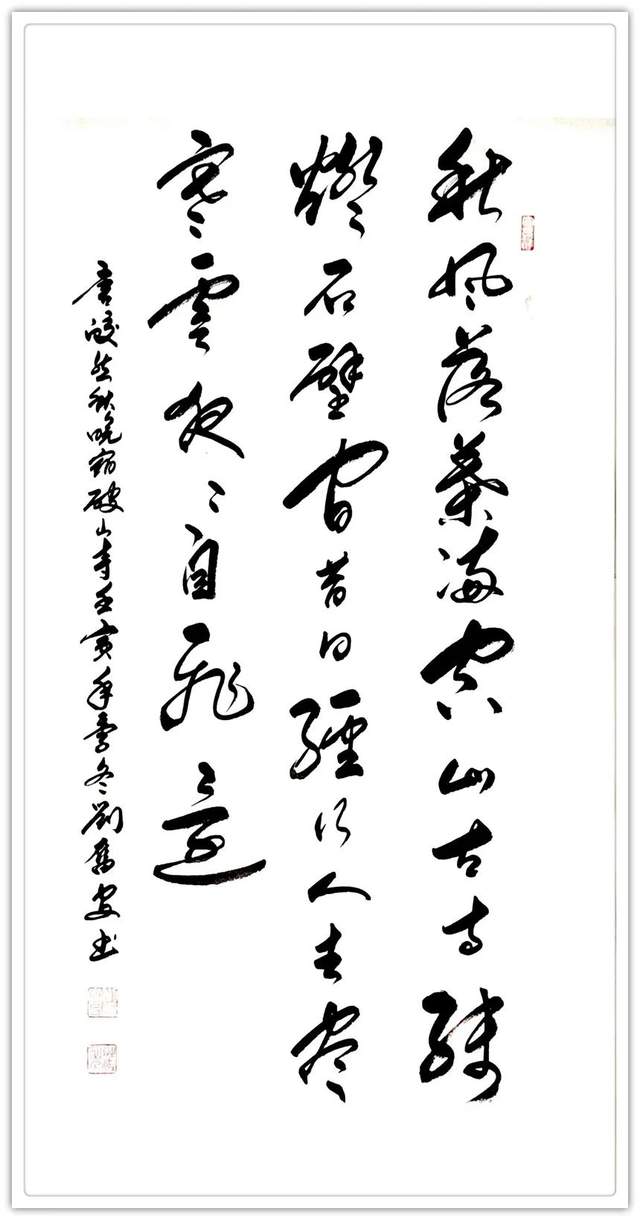 秋風落葉滿空山古寺殘
燈石壁間昔日經行人去盡
寒雲夜〻自飛還
書皎然秋晚宿破山寺壬寅年季冬劉奮安书